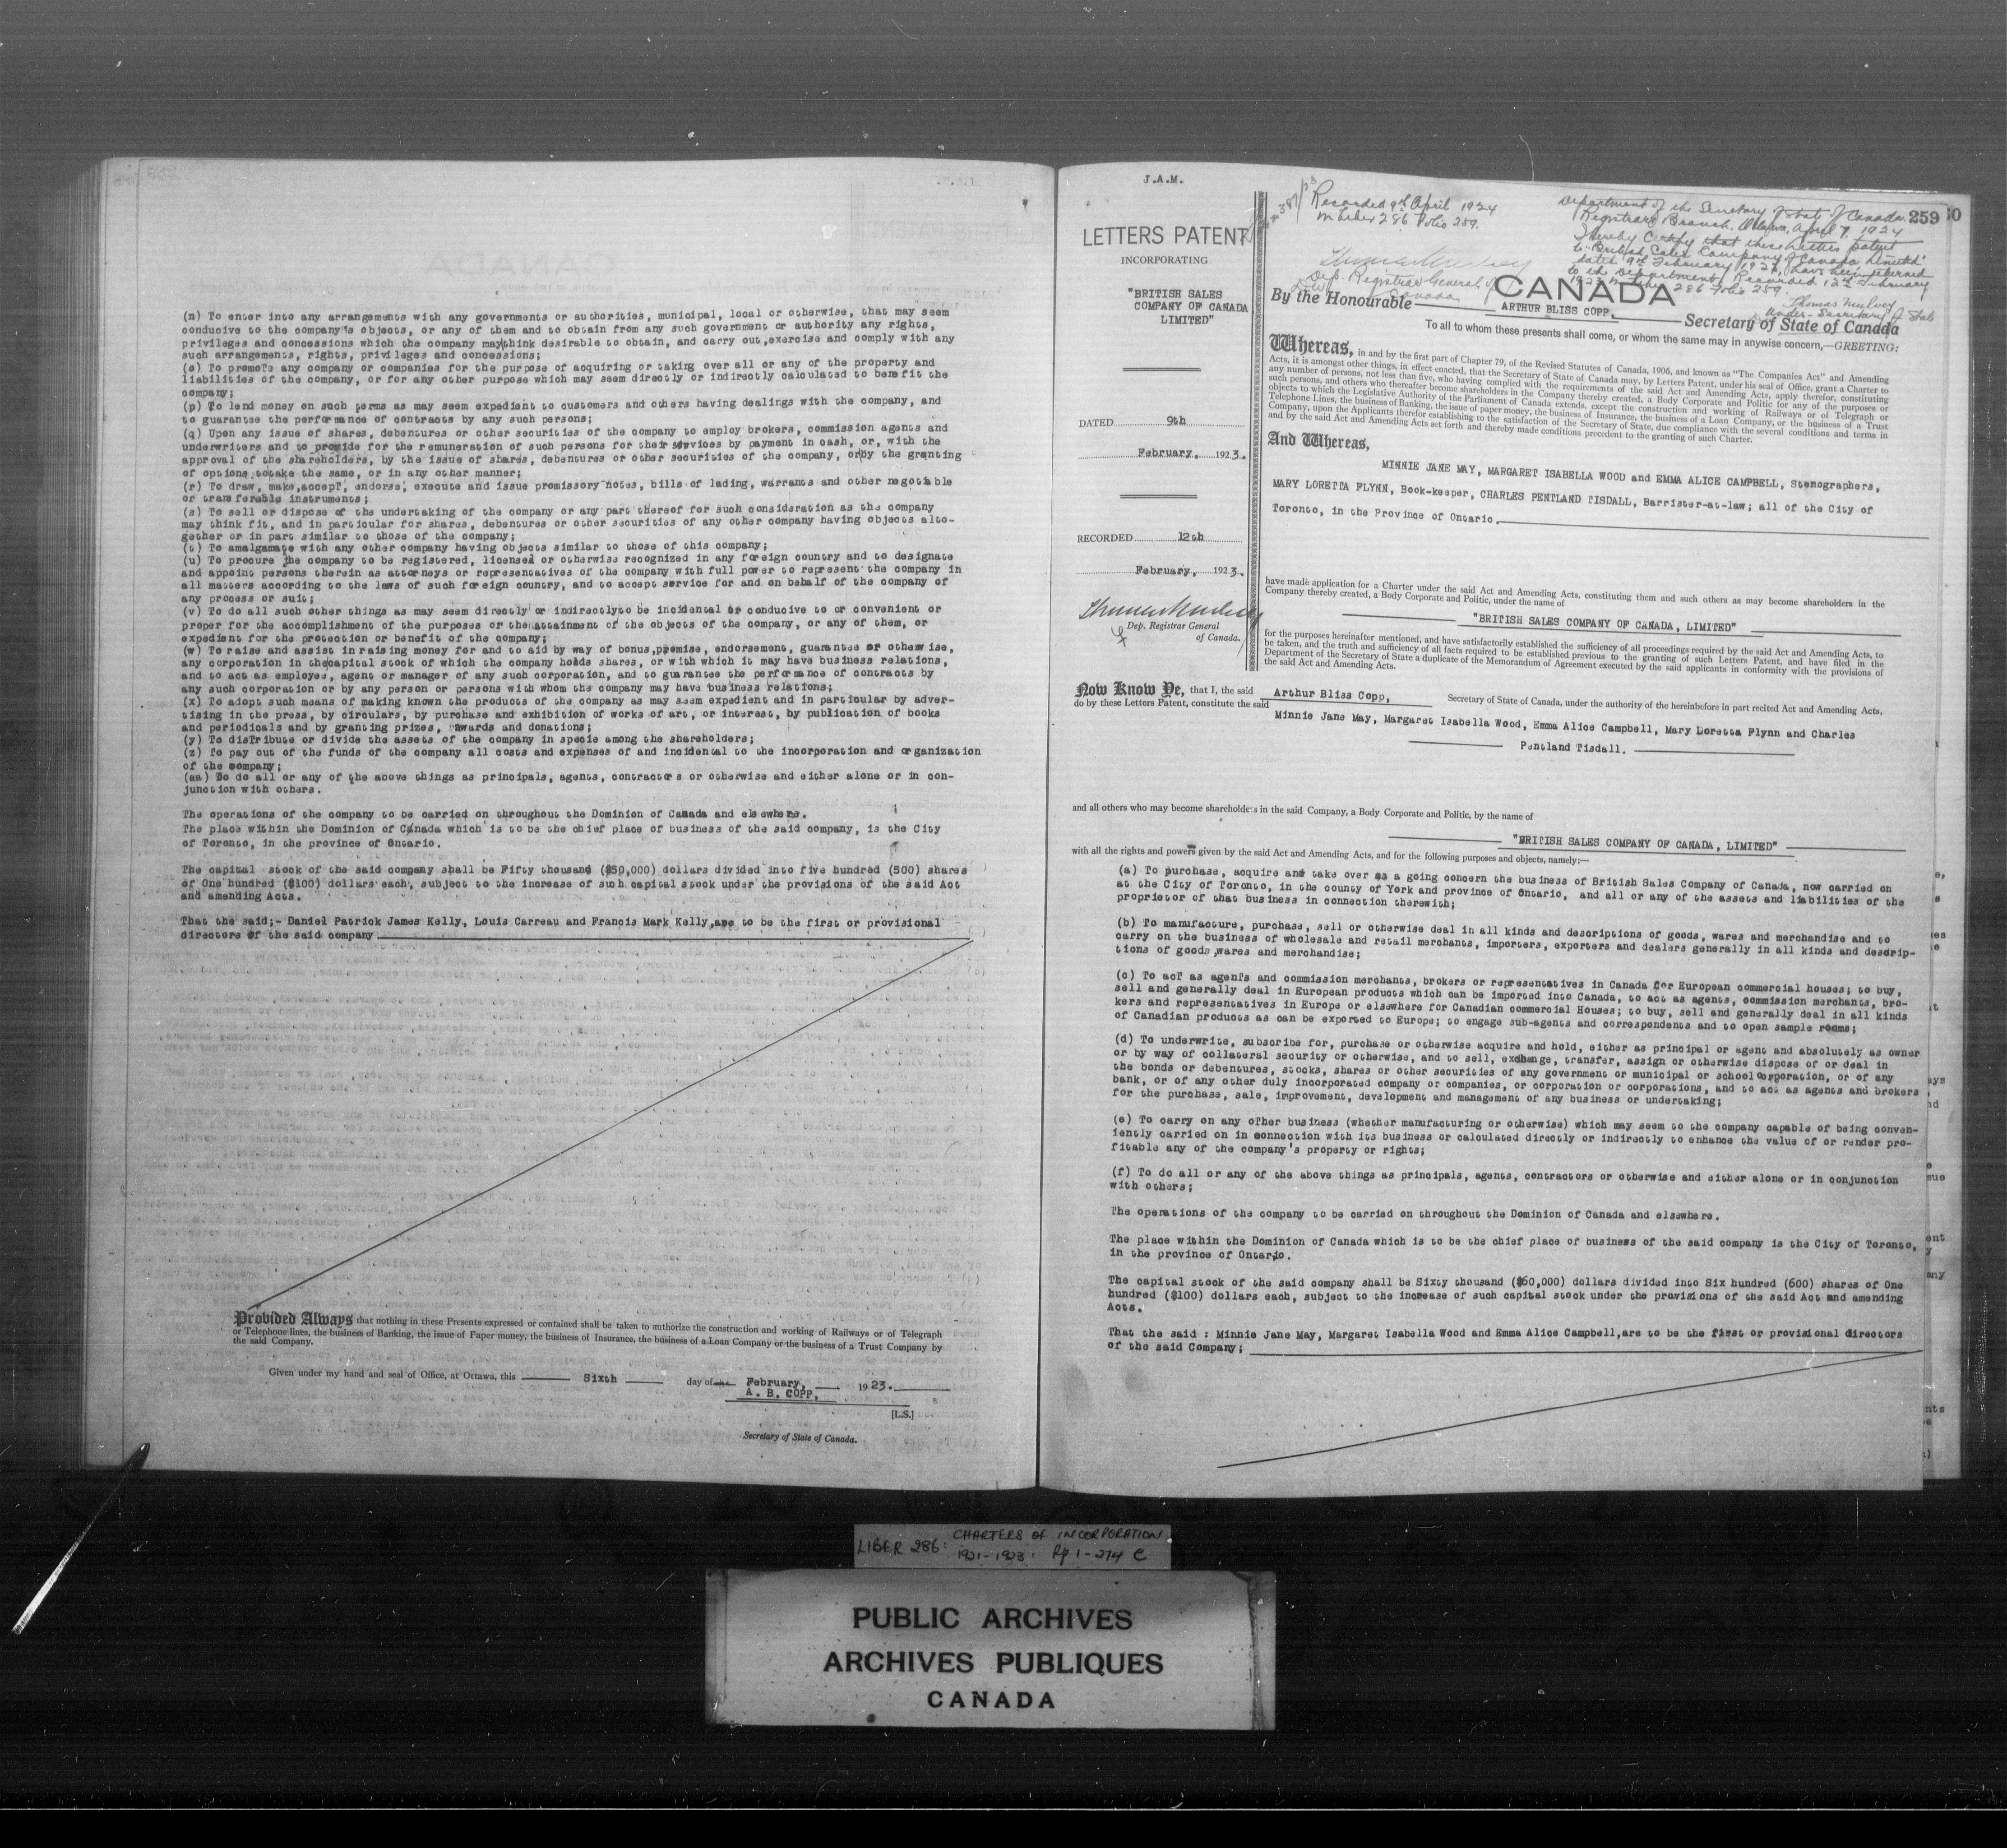 (n) To enter into any arrangements with any governments or authorities, municipal, local or otherwise, that may seem
conducive to the company's objects, or any of them and to obtain from any such government or authority any rights,
privileges and concessions which the company may think desirable to obtain, and carry out, exercise and comply with any
such arrangements, rights, privileges and concessions;
(o) To promote any company or companies for the purpose of acquiring or taking over all or any of the property and
liabilities of the company, or for any other purpose which may seem directly or indirectly calculated to benefit the
company;
(p) To lend money on such terms as may seem expedient to customers and others having dealings with the company, and
to guarantee the performance of contracts by any such persons;
(q) Upon any issue of shares, debentures or other securities of the company to employ brokers, commission agents and
underwriters and to provide for the remuneration of such persons for their services by payment in cash, or, with the
approval of the shareholders, by the issue of shares, debentures or other securities of the company, or by the granting
of options to take the same, or in any other manner;
(r) To draw, make, accept, endorse, execute and issue promissory notes, bills of lading, warrants and other negotiable
or transferable instruments;
(s) To sell or dispose of the undertaking of the company or any part thereof for such consideration as the company
may think fit, and in particular for shares, debentures or other securities of any other company having objects alto-
gether or in part similar to those of the company;
(t) To amalgamate with any other company having objects similar to those of this company;
(u) To procure the company to be registered, licensed or otherwise recognized in any foreign country and to designate
and appoint persons therein as attorneys or representatives of the company with full power to represent the company in
all matters according to the laws of such foreign country, and to accept service for and on behalf of the company of
any process or suit;
(v) To do all such other things as may seem directly or indirectly to be incidental or conducive to or convenient or
proper for the accomplishment of the purposes or the attainment of the objects of the company, or any of them, or
expedient for the protection or benefit of the company;
(w) To raise and assist in raising money for and to aid by way of bonus, promise, endorsement, guarantee or otherwise,
any corporation in the capital stock of which the company holds shares, or with which it may have business relations,
and to act as employee, agent or manager of any such corporation, and to guarantee the performance of contracts by
any such corporation or by any person or persons with whom the company may have business relations;
(x) To adopt such means of making known the products of the company as may seem expedient and in particular by adver-
tising in the press, by circulars, by purchase and exhibition of works of art, or interest, by publication of books
and periodicals and by granting prizes, rewards and donations;
(y) To distribute or divide the assets of the company in specie among the shareholders;
(z) To pay out of the funds of the company all costs and expenses of and incidental to the incorporation and organization
of the company;
(aa) To do all or any of the above things as principals, agents, contractors or otherwise and either alone or in con-
junction with others.
The operations of the company to be carried on throughout the Dominion of Canada and elsewhere.
The place within the Dominion of Canada which is to be the chief place of business of the said company, is the City
of Toronto, in the province of Ontario.
The capital stock of the said company shall be Fifty thousand ($50,000) dollars divided into five hundred (500) shares
of One hundred ($100) dollars each, subject to the increase of such capital stock under the provisions of the said Act
and amending Acts.
That the said;- Daniel Patrick James Kelly, Louis Carreau and Francis Mark Kelly, are to be the first or provisional
directors of the said company
Provided Always that nothing in these Presents expressed or contained shall be taken to authorize the construction and working of Railways or of Telegraph
or Telephone lines, the business of Banking, the issue of Paper money, the business of Insurance, the business of a Loan Company or the business of a Trust Company by
the said Company.
Given under my hand and seal of Office, at Ottawa, this Sixth day of February, 1923.
A. B. COPP,
[L.S.]
Secretary of State of Canada.
J.A.M.
LETTERS PATENT
INCORPORATING
"BRITISH SALES
COMPANY OF CANADA
LIMITED"
DATED 9th
February, 1923.
RECORDED 12th
February, 1923.
Thomas Mulvey
Dep. Registrar General
of Canada.
Recorded 9th April 1924
in Liber 286 Folio 259.
Thomas Mulvey
Dep. Registrar General of
Canada
Department of the Secretary of State of Canada.
Registrar's Branch, Ottawa, April 7, 1924
I hereby Certify that these Letters patent
to "British Sales Company of Canada Limited"
dated 9th February 1923, have been returned
to the Department, Recorded 12th February
1923 in Liber 286 Folio 259.
Thomas Mulvey
Under-Secretary of State
259
CANADA
By the Honourable ARTHUR BLISS COPP, Secretary of State of Canada
To all to whom these presents shall come, or whom the same may in anywise concern,—GREETING:
Whereas, in and by the first part of Chapter 79, of the Revised Statutes of Canada, 1906, and known as "The Companies Act" and Amending
Acts, it is amongst other things, in effect enacted, that the Secretary of State of Canada may, by Letters Patent, under his seal of Office, grant a Charter to
any number of persons, not less than five, who having complied with the requirements of the said Act and Amending Acts, apply therefor, constituting
such persons, and others who thereafter become shareholders in the Company thereby created, a Body Corporate and Politic for any of the purposes or
objects to which the Legislative Authority of the Parliament of Canada extends, except the construction and working of Railways or of Telegraph or
Telephone Lines, the business of Banking, the issue of paper money, the business of Insurance, the business of a Loan Company, or the business of a Trust
Company, upon the Applicants therefor establishing to the satisfaction of the Secretary of State, due compliance with the several conditions and terms in
and by the said Act and Amending Acts set forth and thereby made conditions precedent to the granting of such Charter.
And Whereas,
MINNIE JANE MAY, MARGARET ISABELLA WOOD and EMMA ALICE CAMPBELL, Stenographers,
MARY LORETTA FLYNN, Book-keeper, CHARLES PENTLAND TISDALL, Barrister-at-law; all of the City of
Toronto, in the Province of Ontario,
have made application for a Charter under the said Act and Amending Acts, constituting them and such others as may become shareholders in the
Company thereby created, a Body Corporate and Politic, under the name of
"BRITISH SALES COMPANY OF CANADA, LIMITED"
for the purposes hereinafter mentioned, and have satisfactorily established the sufficiency of all proceedings required by the said Act and Amending Acts, to
be taken, and the truth and sufficiency of all facts required to be established previous to the granting of such Letters Patent, and have filed in the
Department of the Secretary of State a duplicate of the Memorandum of Agreement executed by the said applicants in conformity with the provisions of
the said Act and Amending Acts.
Now Know Ye, that I, the said Arthur Bliss Copp, Secretary of State of Canada, under the authority of the hereinbefore in part recited Act and Amending Acts,
do by these Letters Patent, constitute the said
Minnie Jane May, Margaret Isabella Wood, Emma Alice Campbell, Mary Loretta Flynn and Charles
Pentland Tisdall.
and all others who may become shareholders in the said Company, a Body Corporate and Politic, by the name of
"BRITISH SALES COMPANY OF CANADA, LIMITED"
with all the rights and powers given by the said Act and Amending Acts, and for the following purposes and objects, namely:—
(a) To purchase, acquire and take over as a going concern the business of British Sales Company of Canada, now carried on
at the City of Toronto, in the county of York and province of Ontario, and all or any of the assets and liabilities of the
proprietor of that business in connection therewith;
(b) To manufacture, purchase, sell or otherwise deal in all kinds and descriptions of goods, wares and merchandise and to
carry on the business of wholesale and retail merchants, importers, exporters and dealers generally in all kinds and descrip-
tions of goods, wares and merchandise;
(c) To act as agents and commission merchants, brokers or representatives in Canada for European commercial houses; to buy,
sell and generally deal in European products which can be imported into Canada, to act as agents, commission merchants, bro-
kers and representatives in Europe or elsewhere for Canadian commercial Houses; to buy, sell and generally deal in all kinds
of Canadian products as can be exported to Europe; to engage sub-agents and correspondents and to open sample rooms;
(d) To underwrite, subscribe for, purchase or otherwise acquire and hold, either as principal or agent and absolutely as owner
or by way of collateral security or otherwise, and to sell, exchange, transfer, assign or otherwise dispose of or deal in
the bonds or debentures, stocks, shares or other securities of any government or municipal or school Corporation, or of any
bank, or of any other duly incorporated company or companies, or corporation or corporations, and to act as agents and brokers
for the purchase, sale, improvement, development and management of any business or undertaking;
(e) To carry on any other business (whether manufacturing or otherwise) which may seem to the company capable of being conven-
iently carried on in connection with its business or calculated directly or indirectly to enhance the value of or render pro-
fitable any of the company's property or rights;
(f) To do all or any of the above things as principals, agents, contractors or otherwise and either alone or in conjunction
with others;
The operations of the company to be carried on throughout the Dominion of Canada and elsewhere.
The place within the Dominion of Canada which is to be the chief place of business of the said company is the City of Toronto,
in the province of Ontario.
The capital stock of the said company shall be Sixty thousand ($60,000) dollars divided into Six hundred (600) shares of One
hundred ($100) dollars each, subject to the increase of such capital stock under the provisions of the said Act and amending
Acts.
That the said : Minnie Jane May, Margaret Isabella Wood and Emma Alice Campbell, are to be the first or provisional directors
of the said Company;
LIBER 286: CHARTERS OF INCORPORATION
1921-1923: Pp 1-274 C
PUBLIC ARCHIVES
ARCHIVES PUBLIQUES
CANADA